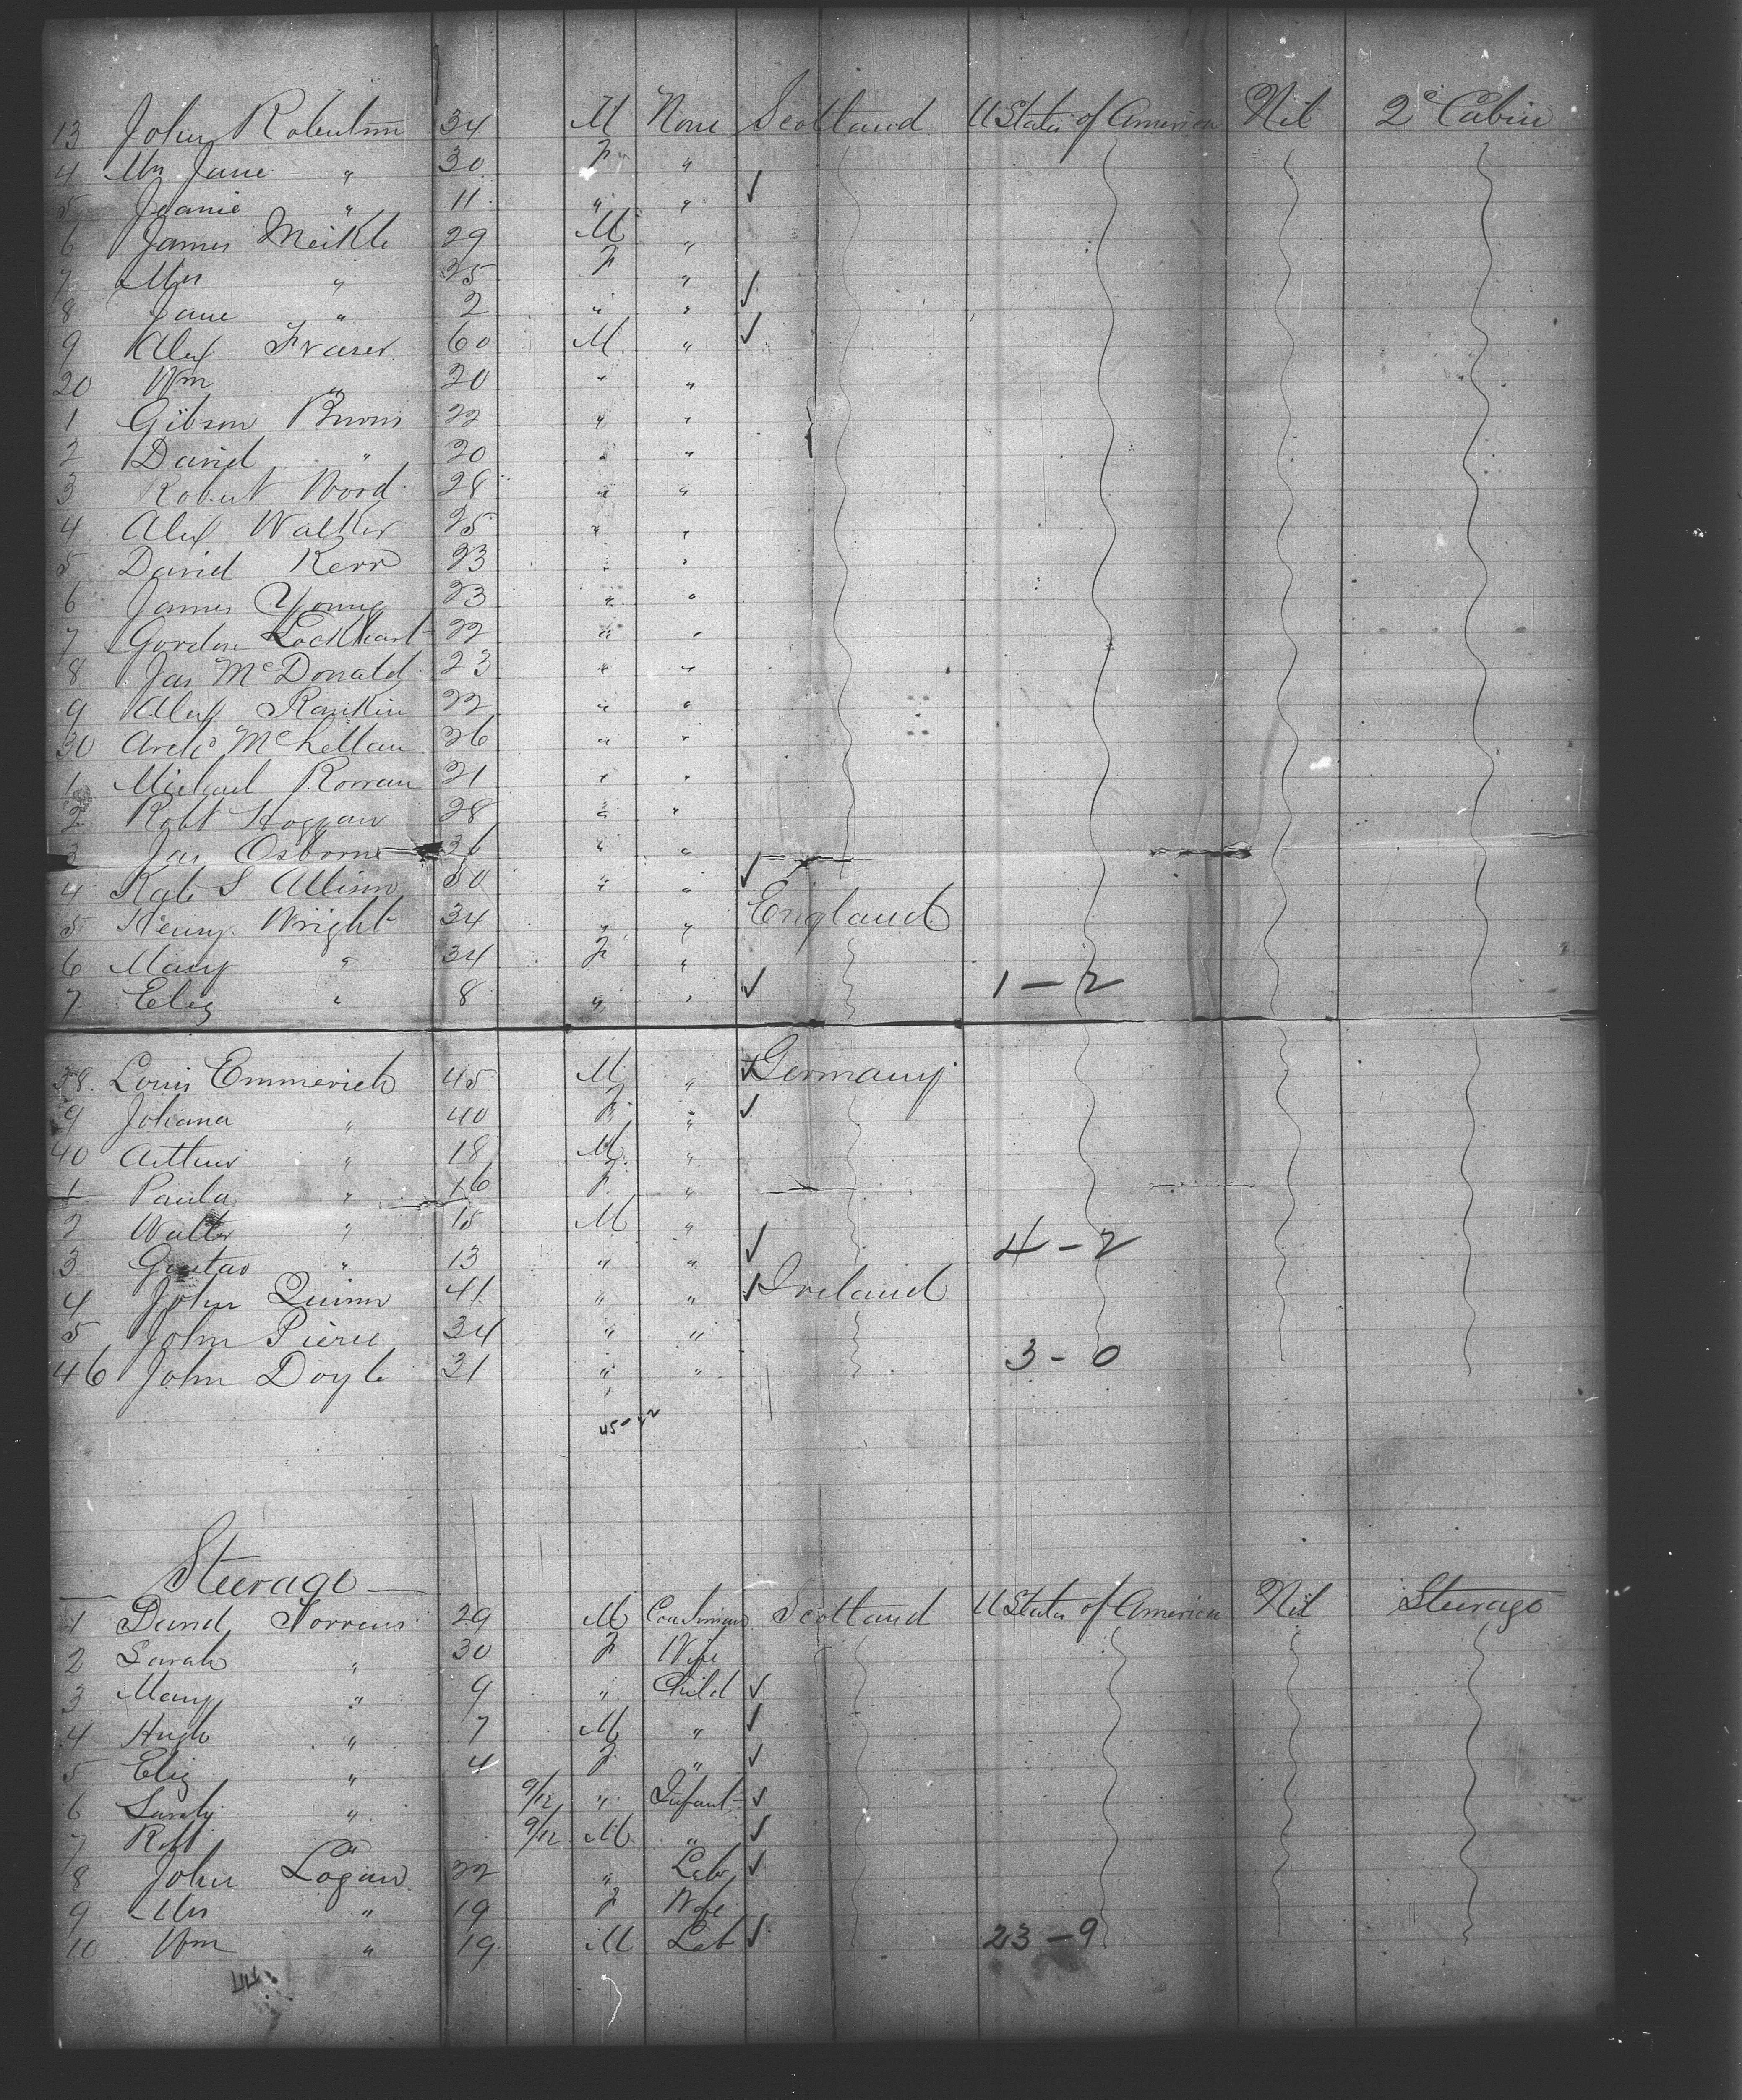 13 John Robertson 34 M None Scotland U States of America Nil 2e Cabin
4 Mrs Jane " 30 F "
5 Jeanie " 11 " " ✓
6 James Meikle 29 M "
7 Mrs " 25 F "
8 Jane " 2 " " ✓
9 Alex Fraser 60 M " ✓
20 Wm " 20 " "
1 Gibson Burns 22 " "
2 David " 20 " "
3 Robert Wood 28 " "
4 Alex Walker 25 " "
5 David Kerr 23 " "
6 James Young 23 " "
7 Gordon Lockhart 22 " "
8 Jas McDonald 23 " "
9 Alex Rankin 22 " "
30 Archd McLellan 26 " "
1 Michael 21 " "
2 Robt 28 " "
3 Jas Osborne 36 " "
4 S Allison 50 " " ✓
5 Henry Wright 34 " " England
6 Mary " 34 F "
7 Eliz " 8 " " ✓ 1 - 2
38. Louis Emmerich 45 M " ✓ Germany
9 Johana " 40 F " ✓
40 Arthur " 18 M "
1 Paula " 16 F "
2 Walter " 15 M "
3 Gustav " 13 " " ✓ 4 - 2
4 John Quinn 41 " " ✓ Ireland
5 John Pierce 34 " "
46 John Doyle 31 " " 3 - 0
Steerage
1 David Torrens 29 M Scotland U States of America Nil Steerage
2 Sarah " 30 F Wife
3 Mary " 9 " Child ✓
4 Hugh " 7 M " ✓
5 Eliz " 4 F " ✓
6 " 9/12 " Infant ✓
7 Robt " 9/12 M " ✓
8 John Logan 22 " Labr ✓
9 Mrs " 19 F Wife
10 Wm " 19 M Lab ✓ 23 - 9